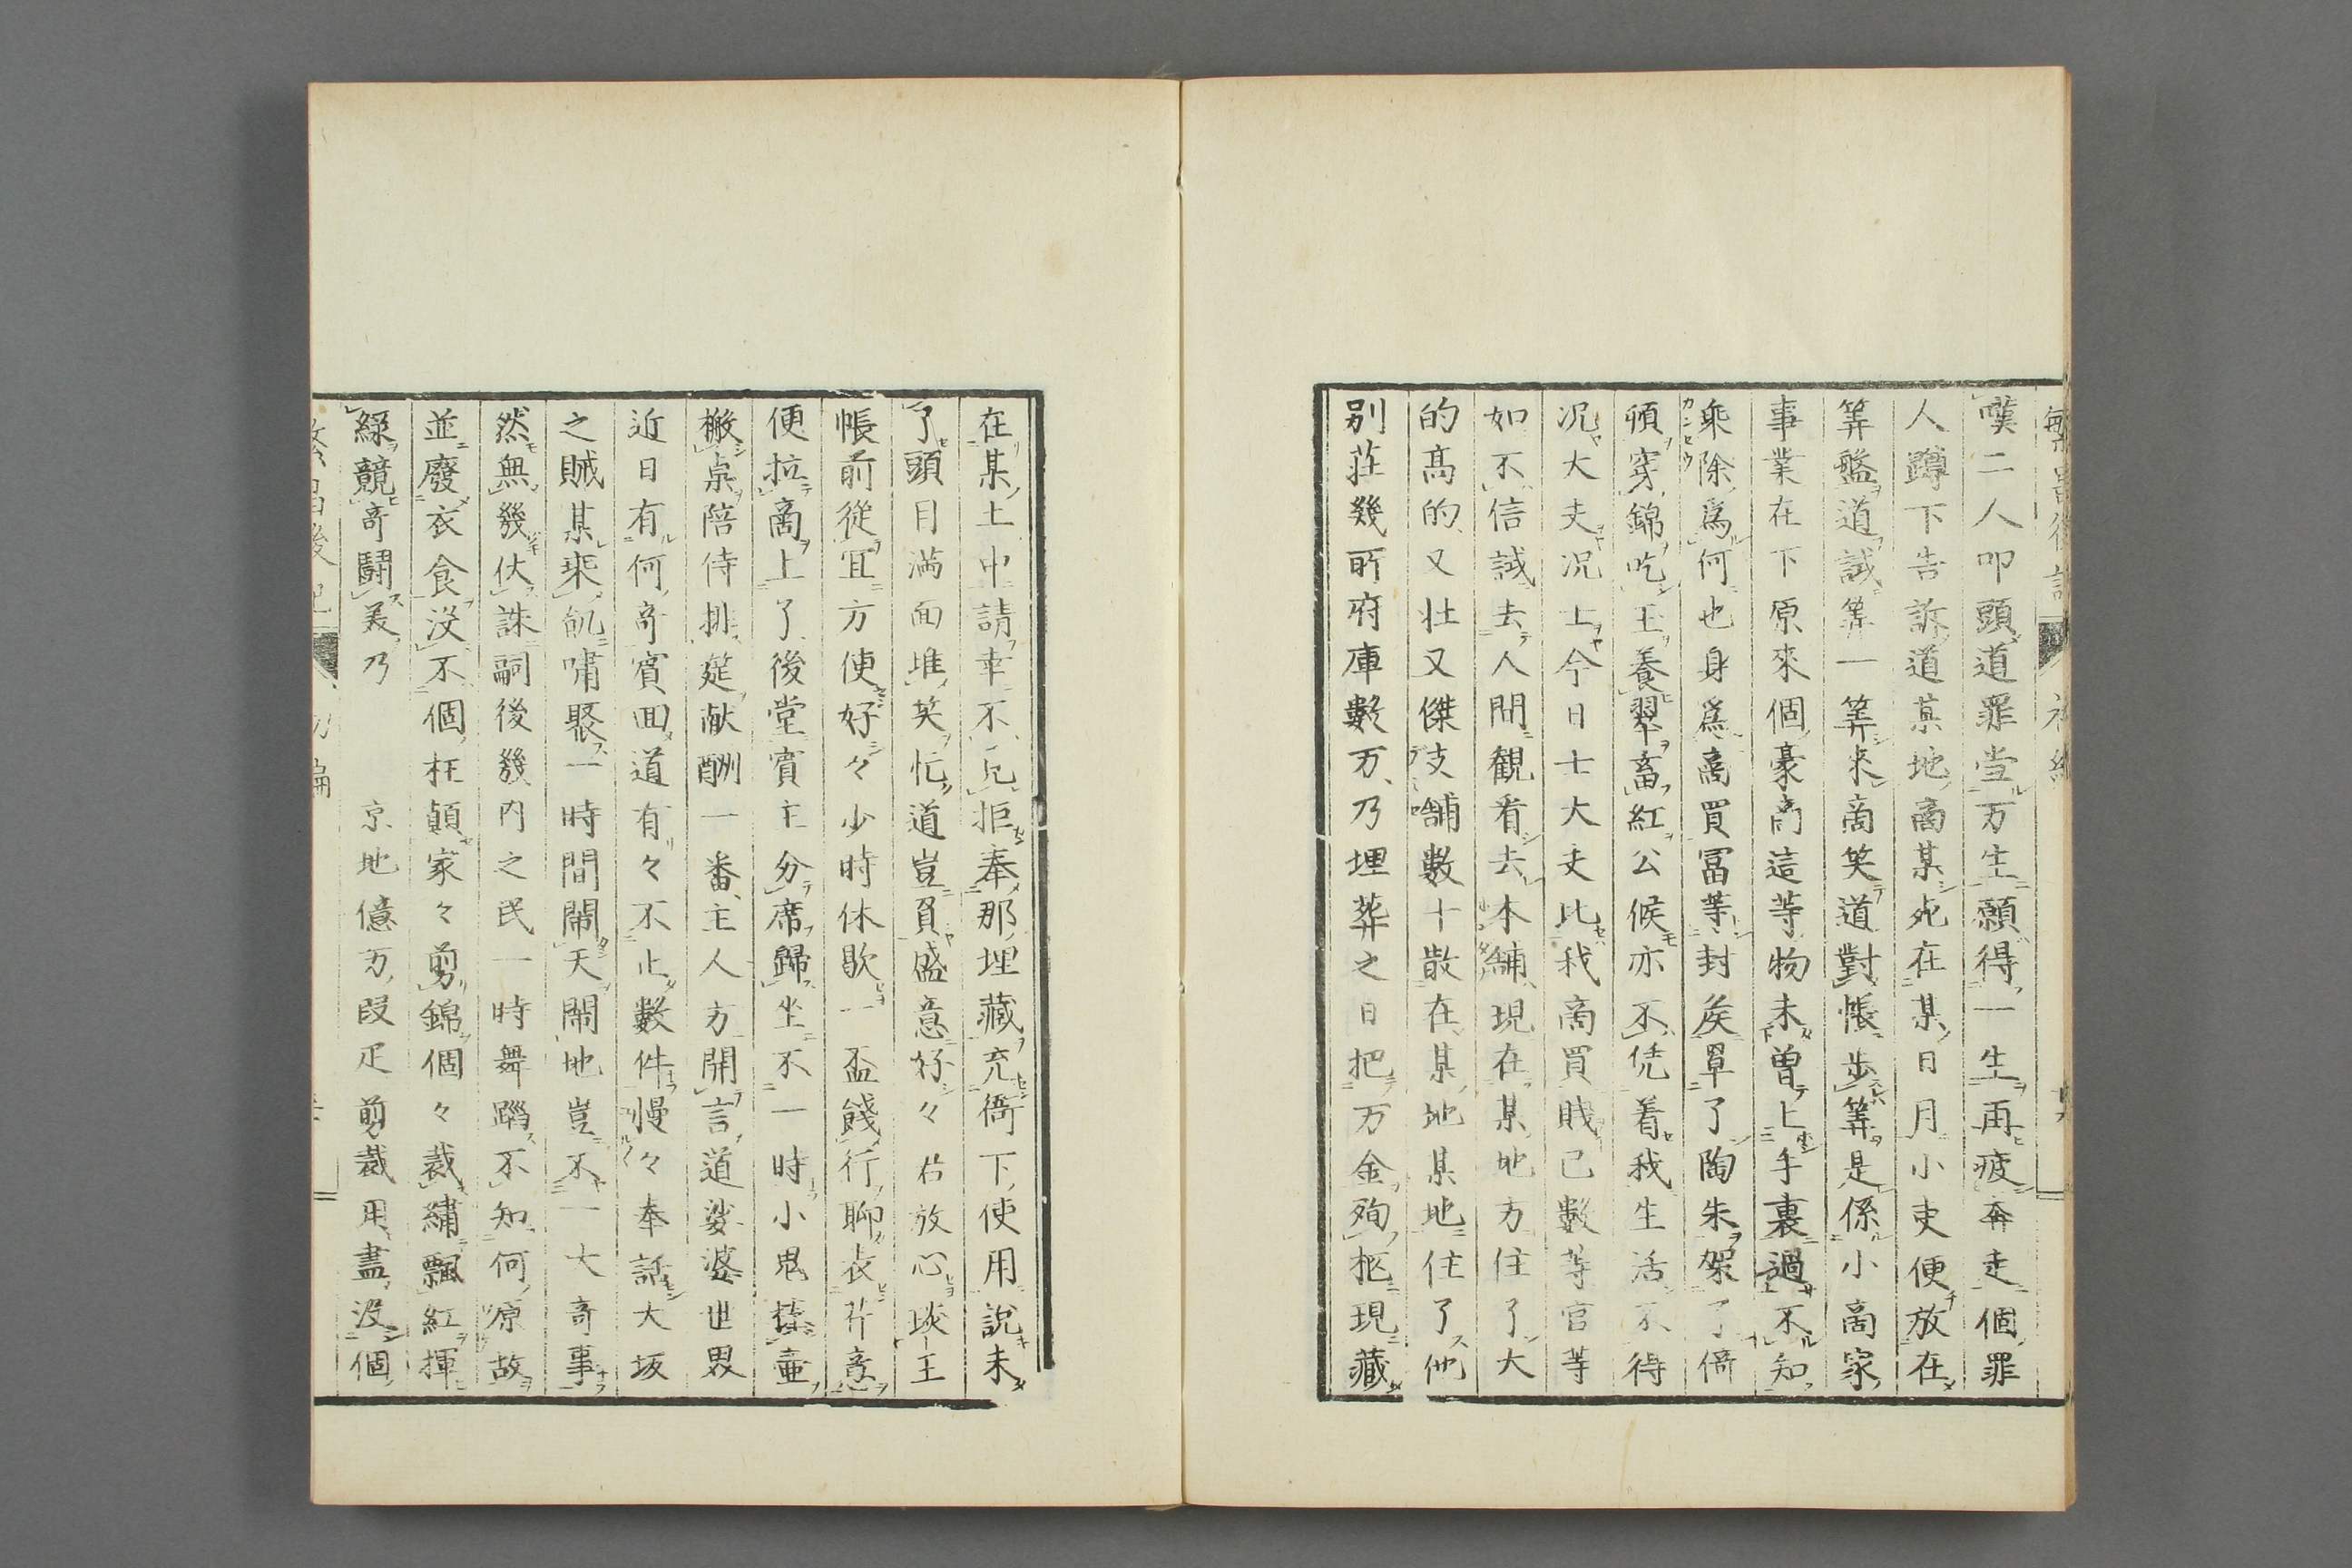 嘆二人叩頭道罪当万生願得一生再疲奔走個罪
人蹲下告訴道某地商某死在某日月小吏便放在
筭盤道誠筭一筭来商笑道對帳歩筭是係小商家
事業在下原來個豪商這等物未曾上手裏過不知
乘除為何也身為商買冨等封矦罩了陶朱架了倚
頓穿錦吃玉養翠畜紅公候亦不凭着我生活不得
况大夫况士今日士大夫比我商買賎已數等官等
如不信試去人間觀看去本舗現在某地方住了大
的高的又壮又傑支舗數十散在某地某地住了他
別莊幾所府庫數万乃埋葬之日把万金殉柩現藏
在某土中請幸不見拒奉那埋藏充衙下使用說未
了頭目満面堆笑忙道豈負盛意好々右放心琰王
帳前從冝方便好々少時休歇一盃餞行聊表芹意
便拉商上了後堂賓主分席歸坐不一時小鬼㨗壷
搬桌陪侍排筵献酬一番主人方開言道娑婆世界
近日有何奇賓回道有々不止數件慢々奉話大坂
之賊某乘飢嘯聚一時間閙天閙地豈不一大奇事
然無幾伏誅嗣後幾内之民一時舞蹈不知何原故
並廢衣食没不個枉顛家々剪錦個々裁繡飄紅揮
綠競奇鬪美乃　京地億万段疋剪裁用盡没個